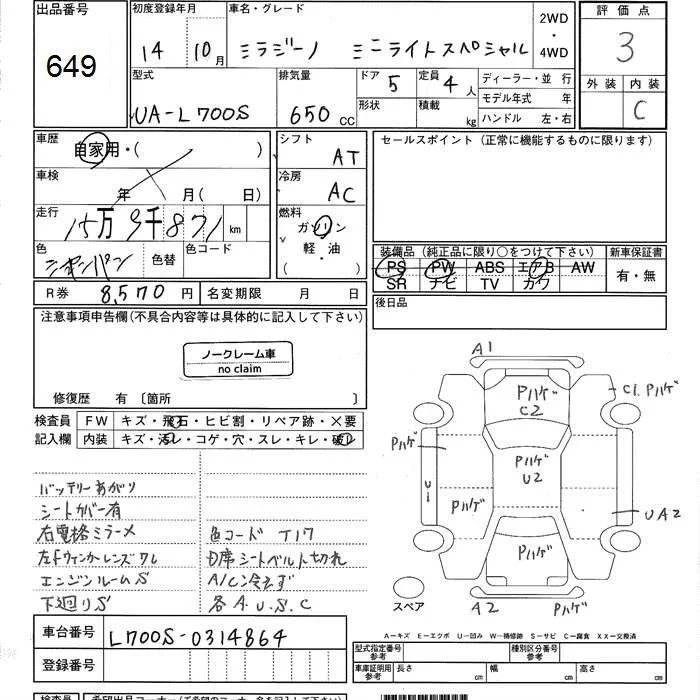 出品番号
649
初度登録年月
14 10月
車名・グレード
ミラジーノ ミニライトスペシャル
2WD
・
4WD
評価点
3
外装 内装
C
型式
UA-L700S
排気量
650 CC
ドア
5
形状
定員
4人
積載
kg
ディーラー・並行
モデル年式 年
ハンドル 左・右
車歴
自家用・( )
車検
年 月(日)
走行
15万9千871 km
色
シャンパン
色替
色コード
シフト
AT
冷房
AC
燃料
ガソリン
軽・油
( )
セールスポイント (正常に機能するものに限ります)
装備品 (純正品に限り○をつけて下さい)
PS PW ABS エアB AW
SR ナビ TV カワ
新車保証書
有・無
R券 8,570円
名変期限 月 日
後日品
注意事項申告欄(不具合内容等は具体的に記入して下さい)
ノークレーム車
no claim
修復歴 有 〔箇所 〕
検査員
記入欄
FW キズ・飛石・ヒビ割・リペア跡・×要
内装 キズ・汚レ・コゲ・穴・スレ・キレ・破レ
バッテリーあがり
シートカバー有
右電格ミラーメ
左Fウィンカーレンズワレ
エンジンルームS
下廻りS
色コード T17
D席シートベルト切れ
A/C冷えず
各A.U.S.C
A1
Pハゲ
C2
C1.Pハゲ
Pハゲ
Pハゲ
U2
U1
Pハゲ
UA2
Pハゲ
スペア
A2
Pハゲ
A-キズ E-エクボ U-凹み W-補修跡 S-サビ C-腐食 XX-交換済
車台番号
L700S-0314864
登録番号
型式指定番号
参考
種別区分番号
参考
車庫証明用
参考
長さ cm
幅 cm
高さ cm
検査員
希望出品コーナー